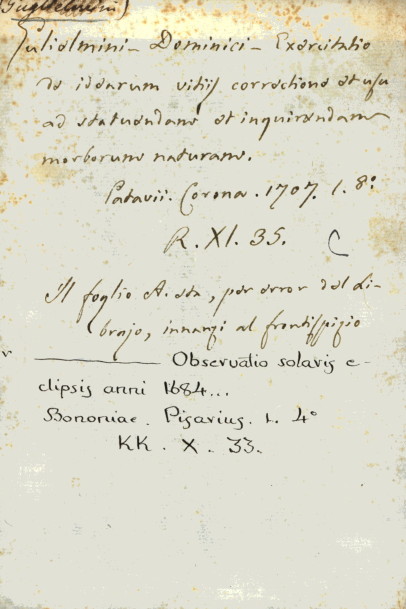 (Guglielmini)
Gulielmini - Dominici - Exercitatio
de idearum vitiis correctione et usu
ad statuendam et inquirendam
morborum naturam.
Patavii. Corona. 1707. 1. 8°
R. XI. 35.
Il foglio A. sta, per error del Li-
brajo, innanzi al frontispizio
v ——— Observatio solaris e-
clipsis anni 1684...
Bononiae. Pisarius. 1. 4°
KK. X. 33.